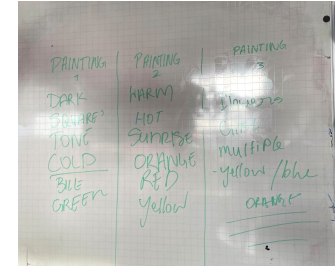 PAINTING
1
DARK
SQUARE
TONE
COLD
BLE
GREEN
PAINTING
2
WARM
HOT
Sunrise
ORANGE
RED
yellow
PAINTING
3
multiple
-yellow/blue
ORANGE